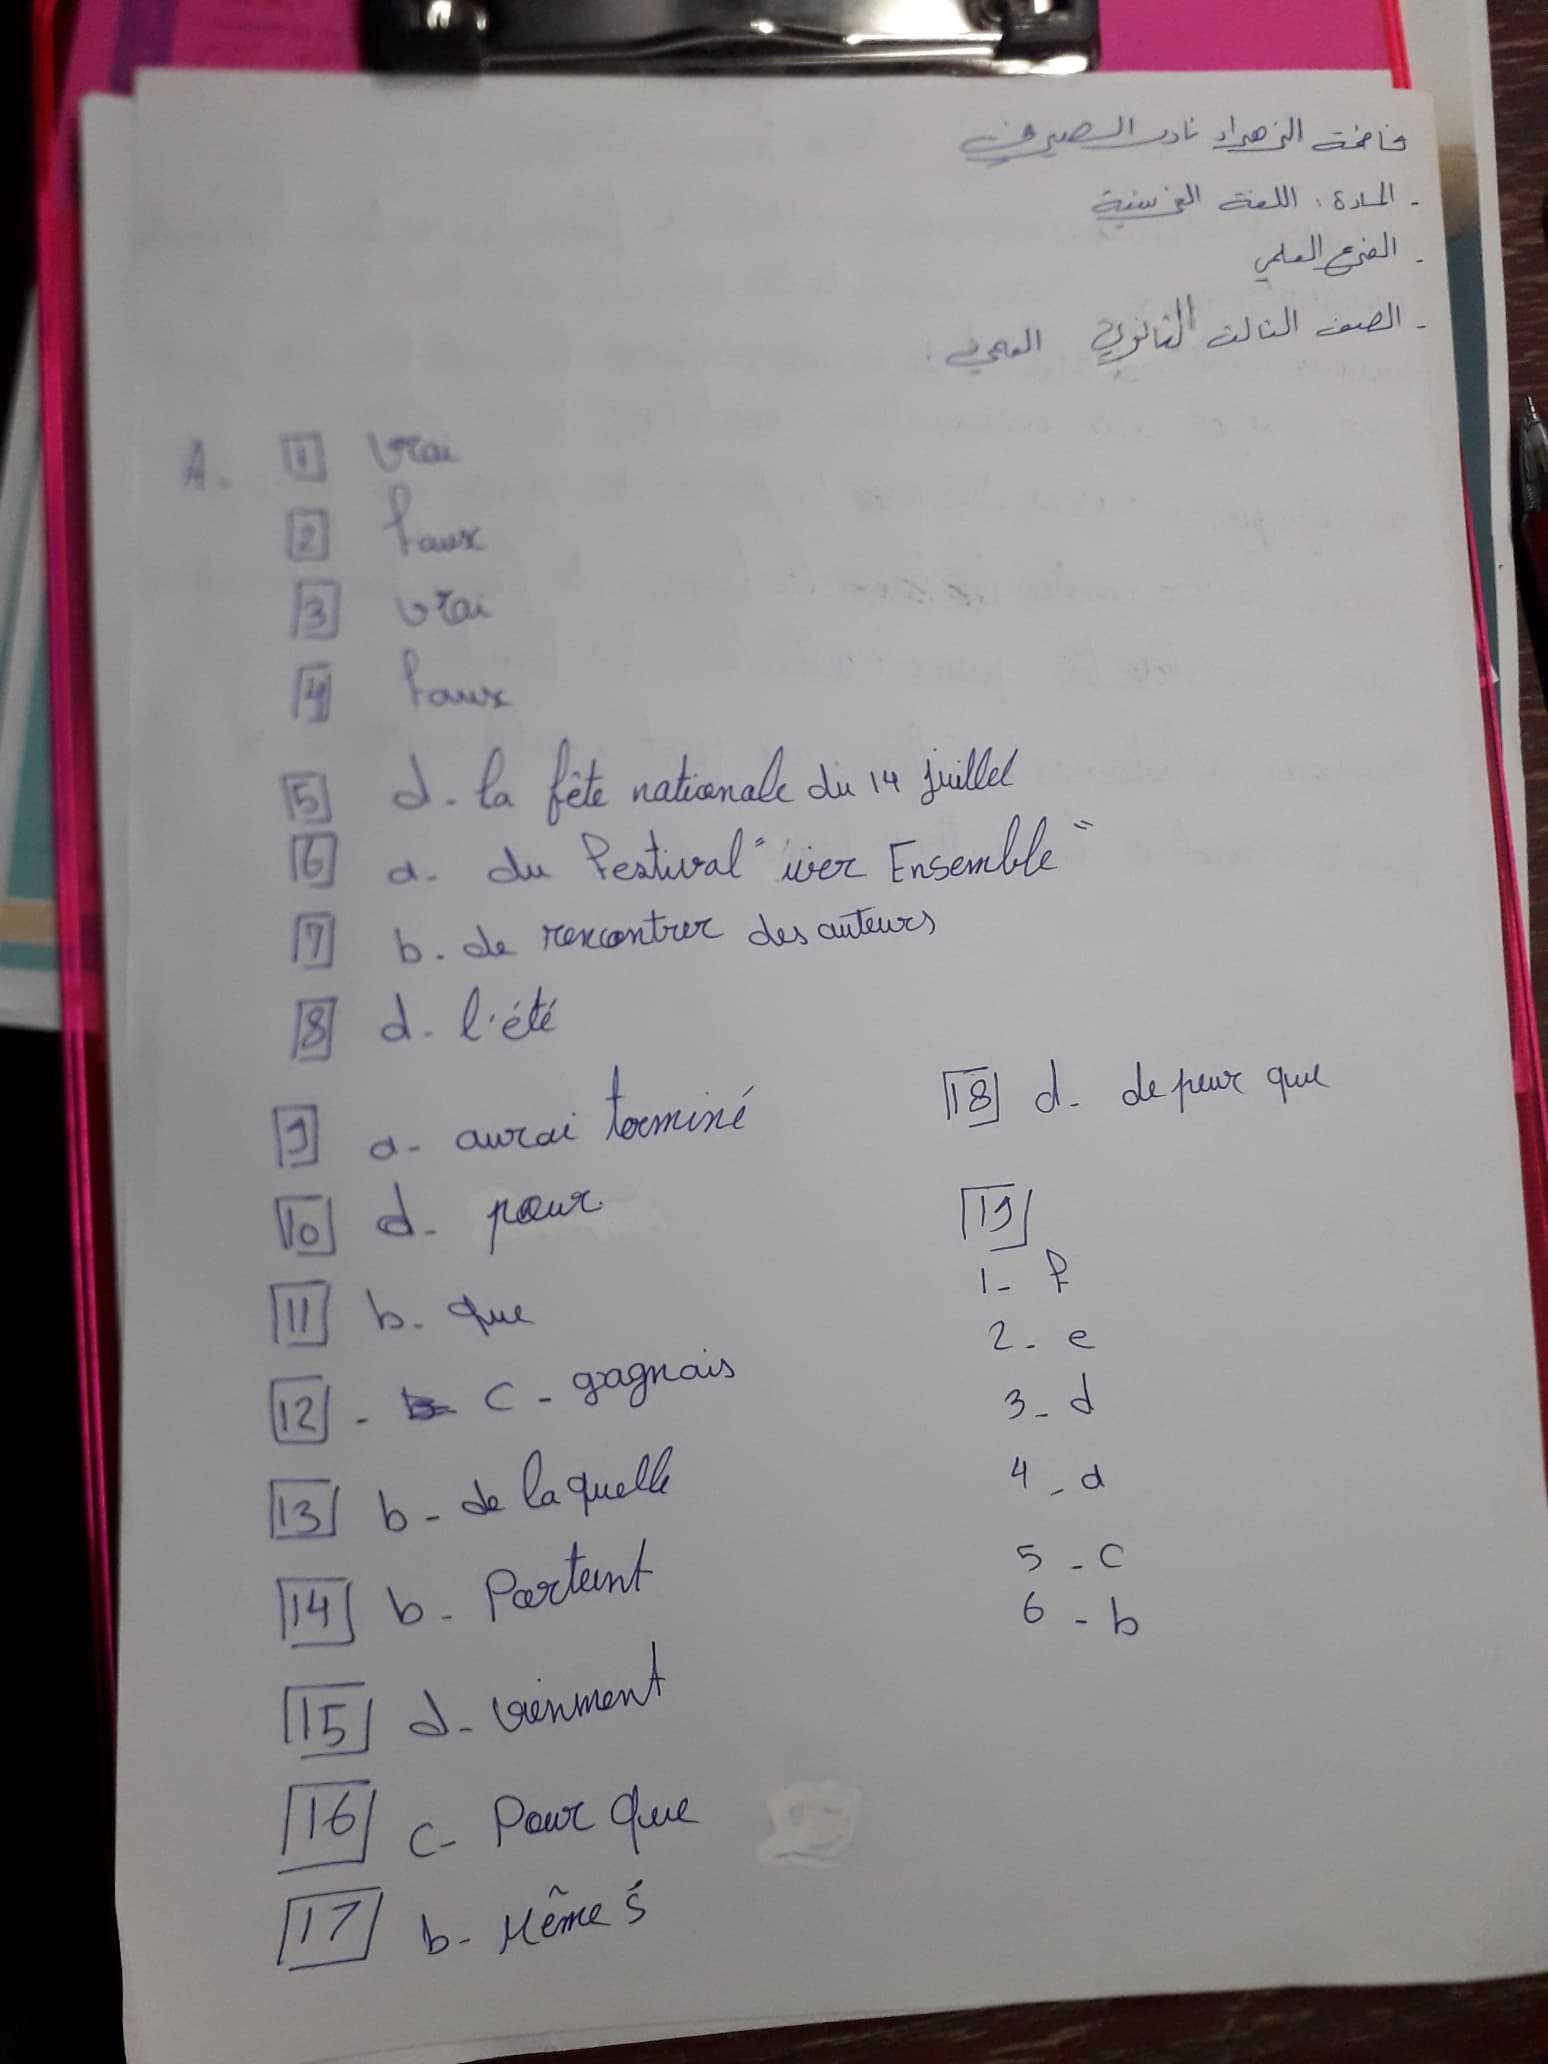 فاطمة الزهراء نادر الصيرفي
- المادة: اللغة الفرنسية
- الفرع العلمي
- الصف الثالث الثانوي العلمي.
A. 1 vrai
2 faux
3 vrai
4 faux
5 d. la fête nationale du 14 juillet
6 a. du Festival "iver Ensemble"
7 b. de rencontrer des auteurs
8 d. l'été
9 a- aurai terminé
10 d- pour
11 b. que
12 - c - gagnais
13 b - de laquelle
14 b - Partent
15 d - viennent
16 c- Pour que
17 b- Même s'
18 d- de peur que
19
1- f
2- e
3- d
4- a
5- c
6- b